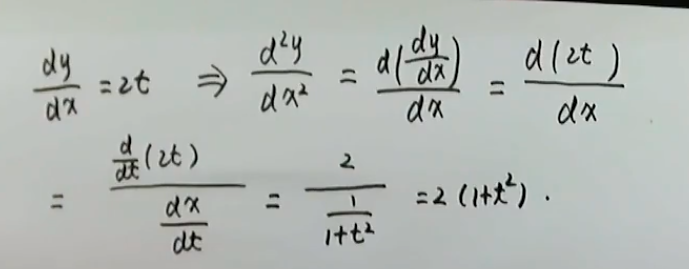 \frac{dy}{dx} = 2t \Rightarrow \frac{d^2y}{dx^2} = \frac{d(\frac{dy}{dx})}{dx} = \frac{d(2t)}{dx}
= \frac{\frac{d}{dt}(2t)}{\frac{dx}{dt}} = \frac{2}{\frac{1}{1+t^2}} = 2(1+t^2).